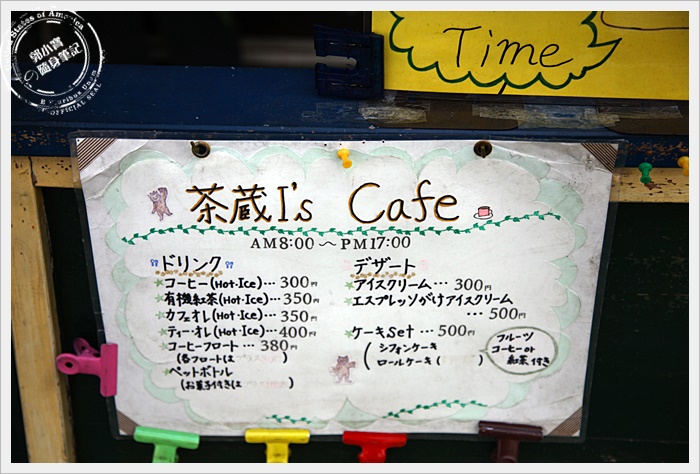 States of America
郭小寶
の隨身筆記
E Pluribus Unum
OFFICIAL SEAL
Time
茶蔵I's Cafe
AM8:00〜PM17:00
ドリンク
コーヒー(Hot・Ice)…300円
有機紅茶(Hot・Ice)…350円
カフェオレ(Hot・Ice)…350円
ティーオレ(Hot・Ice)…400円
コーヒーフロート…380円
(各フロートは )
ペットボトル
(お菓子付きは )
デザート
アイスクリーム…300円
エスプレッソがけアイスクリーム
…500円
ケーキSet…500円
(シフォンケーキ
ロールケーキ( )
フルーツ
コーヒーor
紅茶付き